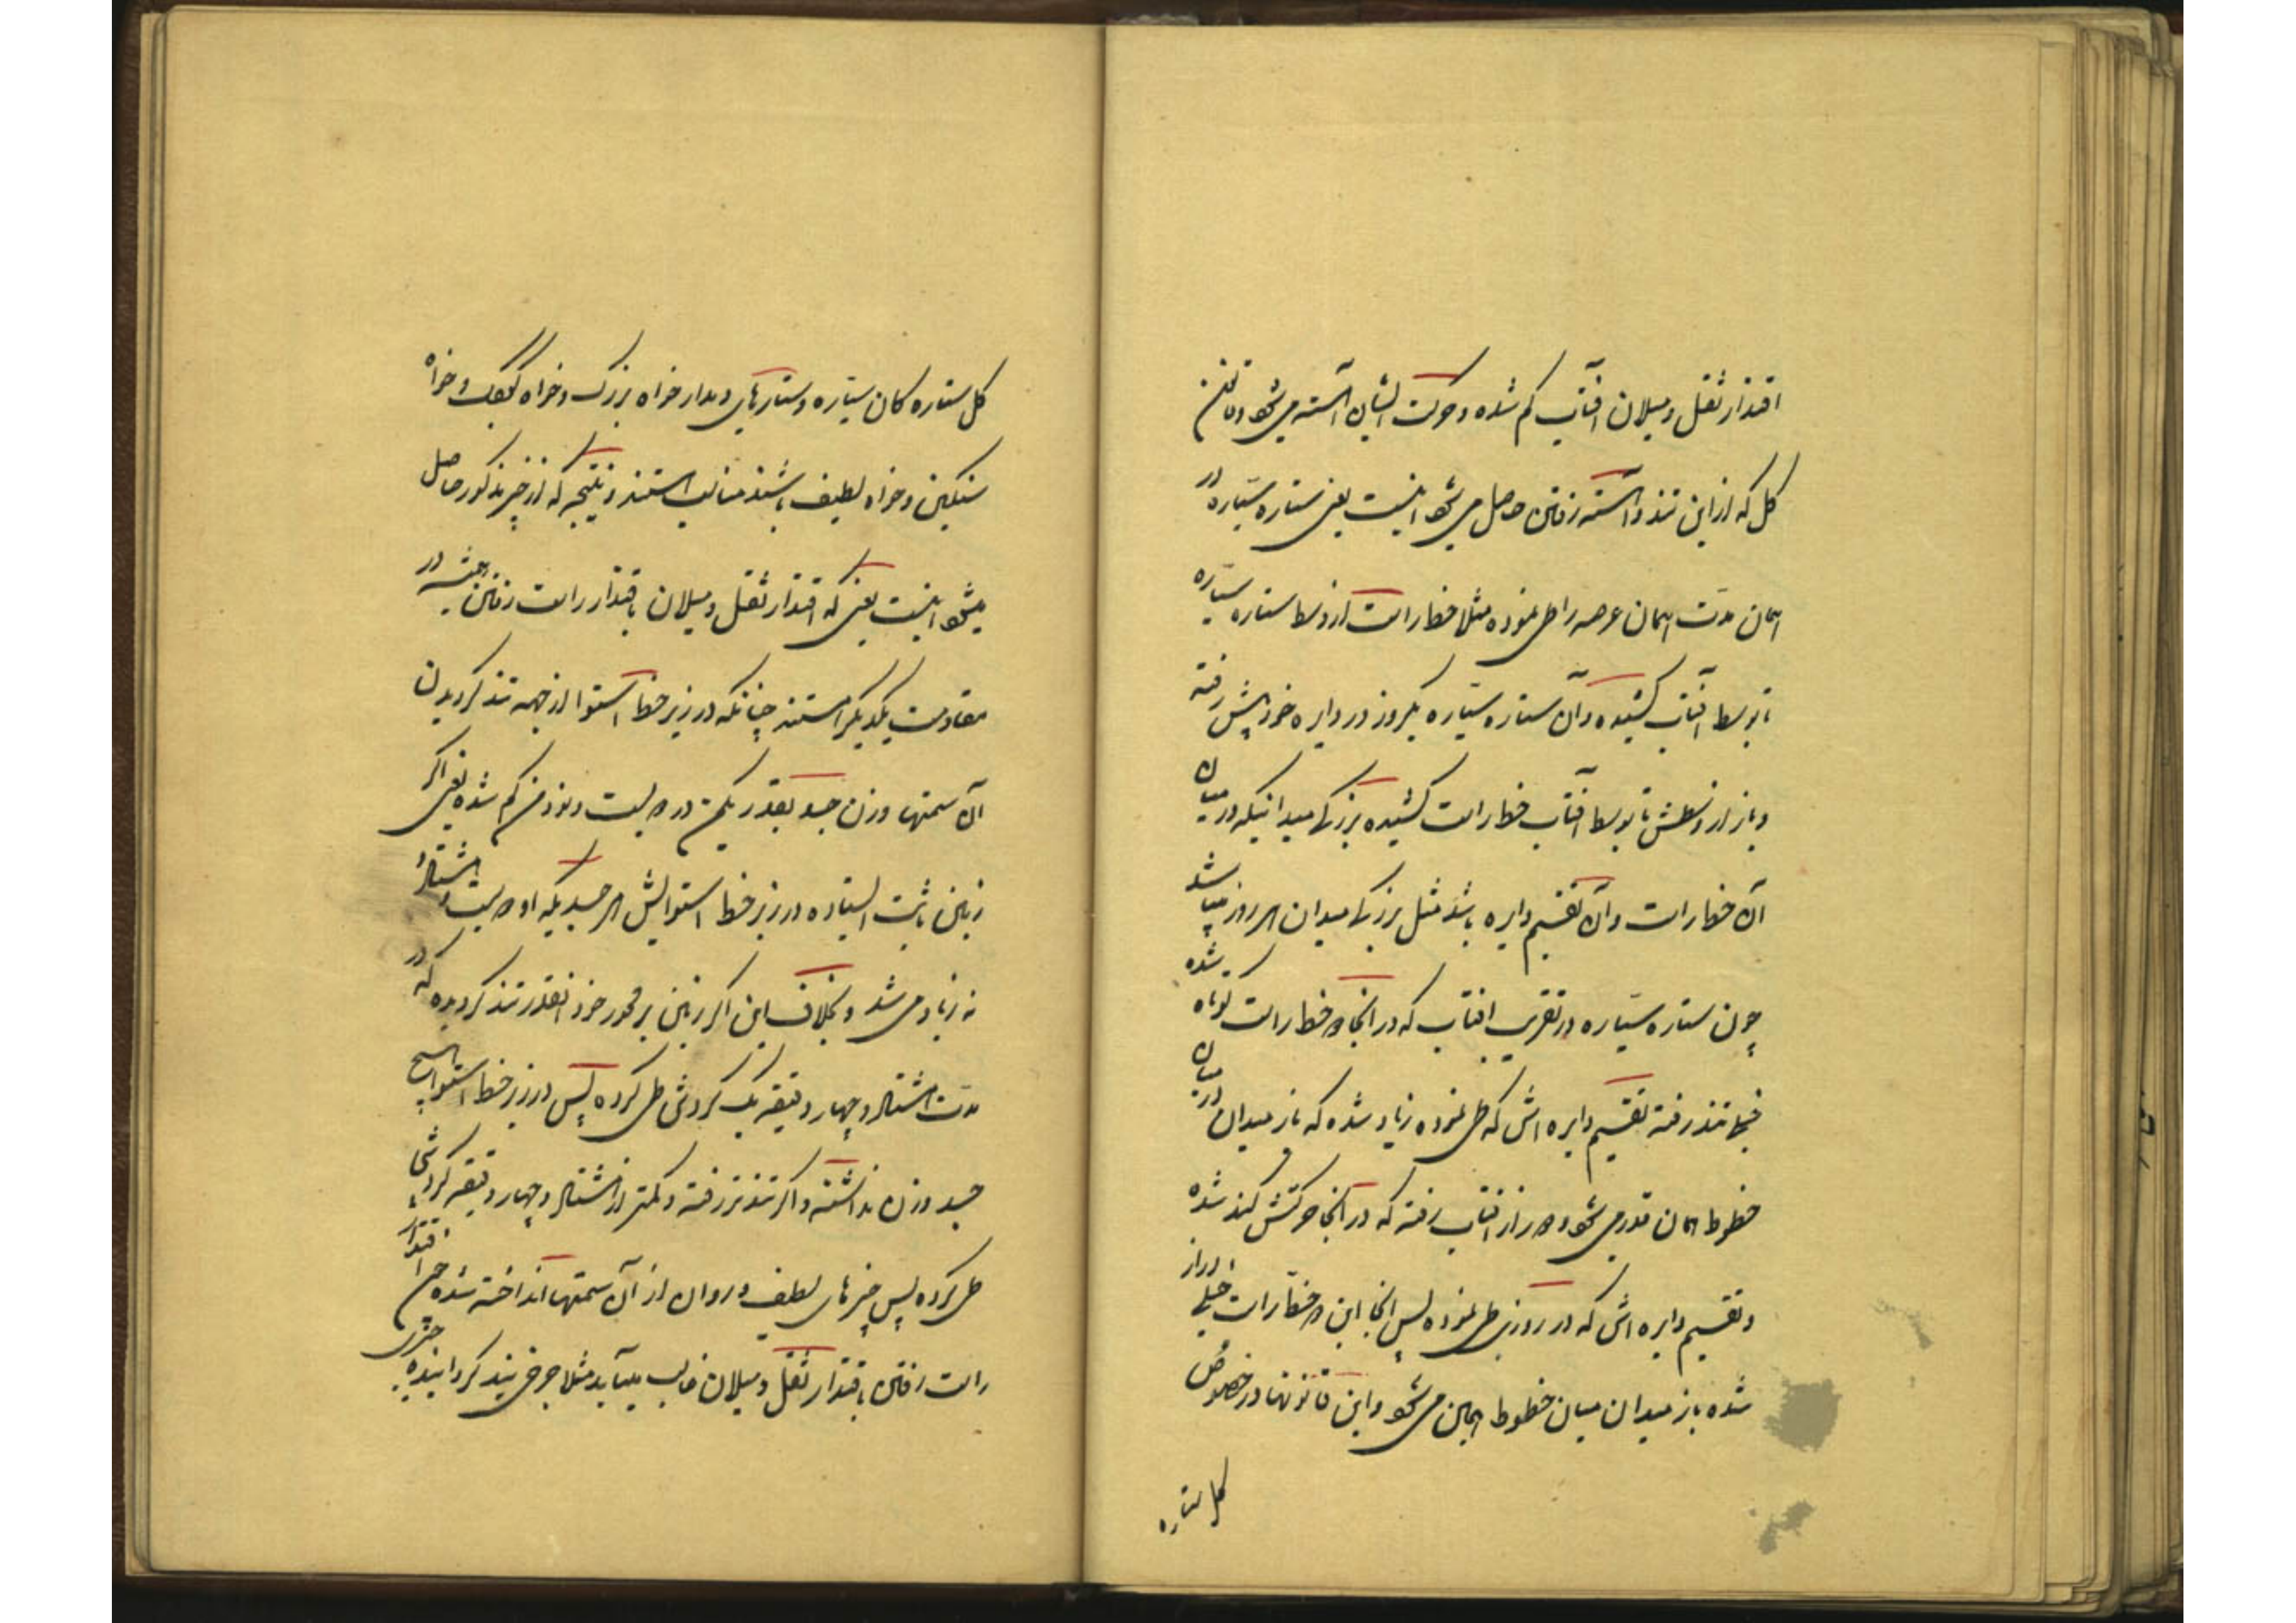 اقتدار ثقل و میلان افتاب کم شده و حرکت ایشان آهسته می‌شود و قانون
کل که از این تند و آهسته رفتن حاصل می‌شود اینست یعنی ستاره سیّاره در
همان مدّت همان عرصه را طی نموده مثلا خط راست از وسط ستاره سیّاره
تا بوسط افتاب کشیده و آن ستاره سیّاره یکروز در دایره خود پیش رفته
و باز از وسطش تا بوسط افتاب خط راست کشیده بزرگی میدانیکه در میان
آن خط راست و آن تقسیم دایره باشد مثل بزرگی میدان هر روز میباشد
چون ستاره سیّاره در تقرب افتاب که در انجا هر خط راست کوتاه شده
خیلی تند رفته تقسیم دایره اش که طی نموده زیاد شده که باز میدان در میان
خطوط همان قدر می‌شود و هر از افتاب رفته که در آنجا حرکتش کند شده
و تقسیم دایره اش که در روزی طی نموده پس انجا این هر خط راست خیلی دراز
شده باز میدان میان خطوط همان می‌شود و این قانونها در خصوص
کل ستاره
کل ستاره کان سیّاره و ستارهای دمدار خواه بزرگ و خواه کوچک و خواه
سنکین و خواه لطیف باشند مناسب هستند و نتیجه که از خبر مذکور حاصل
میشود اینست یعنی که اقتدار ثقل و میلان باقتدار راست رفتن همیشه در
مقاومت یکدیگر هستند چنانکه در زیر خط استوا از جهه تند کردیدن
آن سمتها وزن جسد بقدر یکمن در دویست و نود من کم شده یعنی اگر
زمین ثابت ایستاده در زیر خط استوایش هر جسدیکه او دویست و هشتاد
نه زیاد می شد و بخلاف این اگر زمین بر محور خود انقدر تند کردیده که در
مدّت هشتاد و چهار دقیقه یک کردشی طی کرده پس در زیر خط استوا هیچ
جسد وزن نداشته و اگر تندتر رفته و کمتر از هشتاد و چهار دقیقه کردشی
طی کرده پس چیزهای لطیف و روان از آن سمتها انداخته شده اقتدار
راست رفتن باقتدار ثقل و میلان غالب میآید مثلا چرخی تند کرداینده چیزی